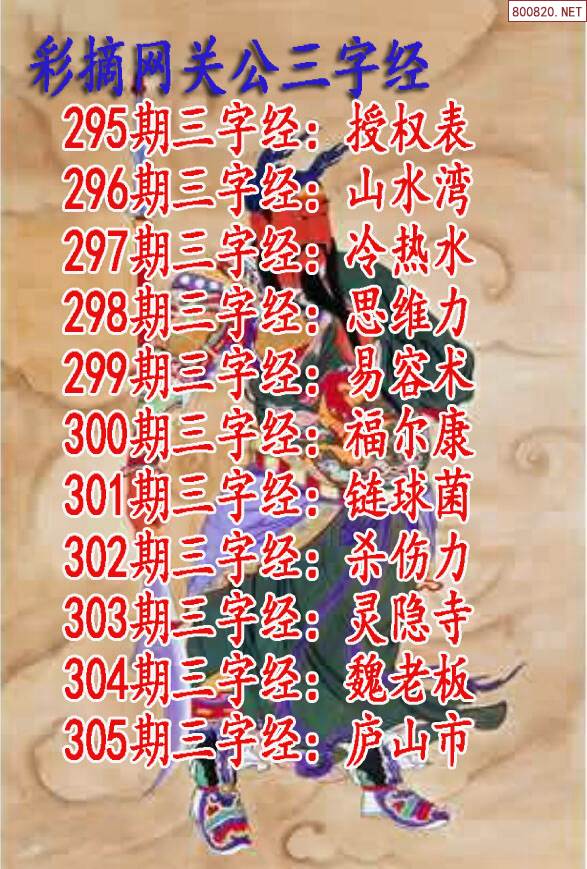 800820.NET
彩摘网关公三字经
295期三字经：授权表
296期三字经：山水湾
297期三字经：冷热水
298期三字经：思维力
299期三字经：易容术
300期三字经：福尔康
301期三字经：链球菌
302期三字经：杀伤力
303期三字经：灵隐寺
304期三字经：魏老板
305期三字经：庐山市